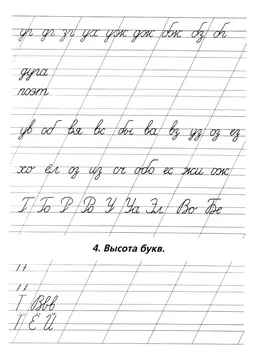 уг дг зг уа уж дж бж бз бһ
дуга
поэт
ув об вя вс бы ва вз уз оз ез
хо ёл оз из сч обо ес жи ож
Г Го Р Ро У Уа Эл Во Бе
4. Высота букв.
Г Ввв
Г Ё Й